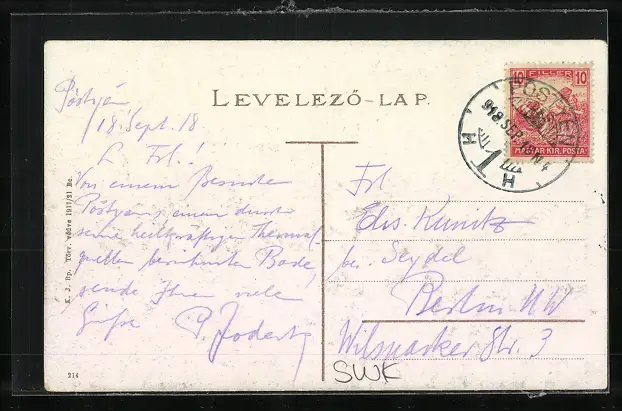 LEVELEZŐ-LAP.
10 FILLER 10
MAGYAR KIR. POSTA
PÖSTYÉN
918 SEP. N4
1
H H
Pöstyén
18. Sept. 18
L. Frl.!
Von einem Besuche
Pöstyéns, einem durch
seine heilkräftigen Thermal
quellen berühmten Bade,
sende Ihnen viele
Grüße P.
Frl
Elis. Kunitz
bei Seydel
Berlin NW
Wilsnacker Str. 3
SWK
K. J. Bp. Törv. védve 1917/21 Be.
214